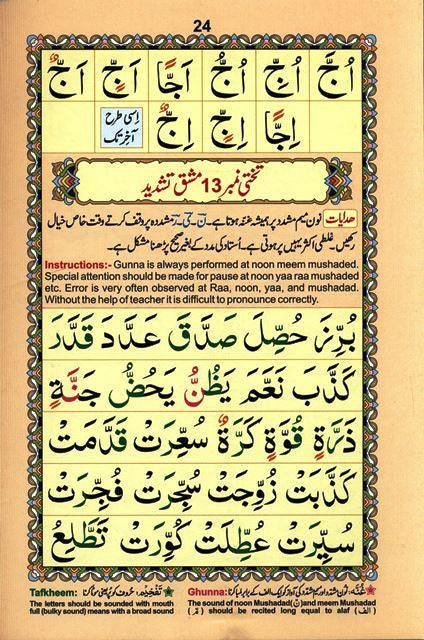 24
اُجَّ اُجِّ اُجُّ اَجًّا اَجٍّ اَجٌّ
اِجًّا اِجٍّ اِجٌّ اسی طرح آخر تک
تختی نمبر 13 مشق تشدید
ھدایات نون میم مشدد پر ہمیشہ غنہ ہوتا ہے۔ مشدد پر وقف کرتے وقت خاص خیال
رکھیں۔ غلطی اکثر یہیں پر ہوتی ہے۔ استاد کی مدد کے بغیر صحیح پڑھنا مشکل ہے۔
Instructions:- Gunna is always performed at noon meem mushaded.
Special attention should be made for pause at noon yaa raa mushaded
etc. Error is very often observed at Raa, noon, yaa, and mushadad.
Without the help of teacher it is difficult to pronounce correctly.
بُرِّزَ حُصِّلَ صَدَّقَ عَدَّدَ قَدَّرَ
كَذَّبَ نَعَّمَ يَظُنُّ يَحُضُّ جَنَّةٍ
ذَرَّةٍ قُوَّةٍ كَرَّةٌ سُعِّرَتْ قَدَّمَتْ
كَذَّبَتْ زُوِّجَتْ سُجِّرَتْ فُجِّرَتْ
سُيِّرَتْ عُطِّلَتْ كُوِّرَتْ تَطَّلِعُ
Tafkheem: تَفْخِيْم: حروف کو پُر یعنی موٹا کرنا
The letters should be sounded with mouth
full (bulky sound) means with a broad sound
Ghunna: غُنَّه: نون مشدد اور میم مشدد کی آواز کو ایک الف کے برابر لمبا کرنا
The sound of noon Mushadad (نّ) and meem Mushadad
(مّ) should be recited long equal to alaf (الف)